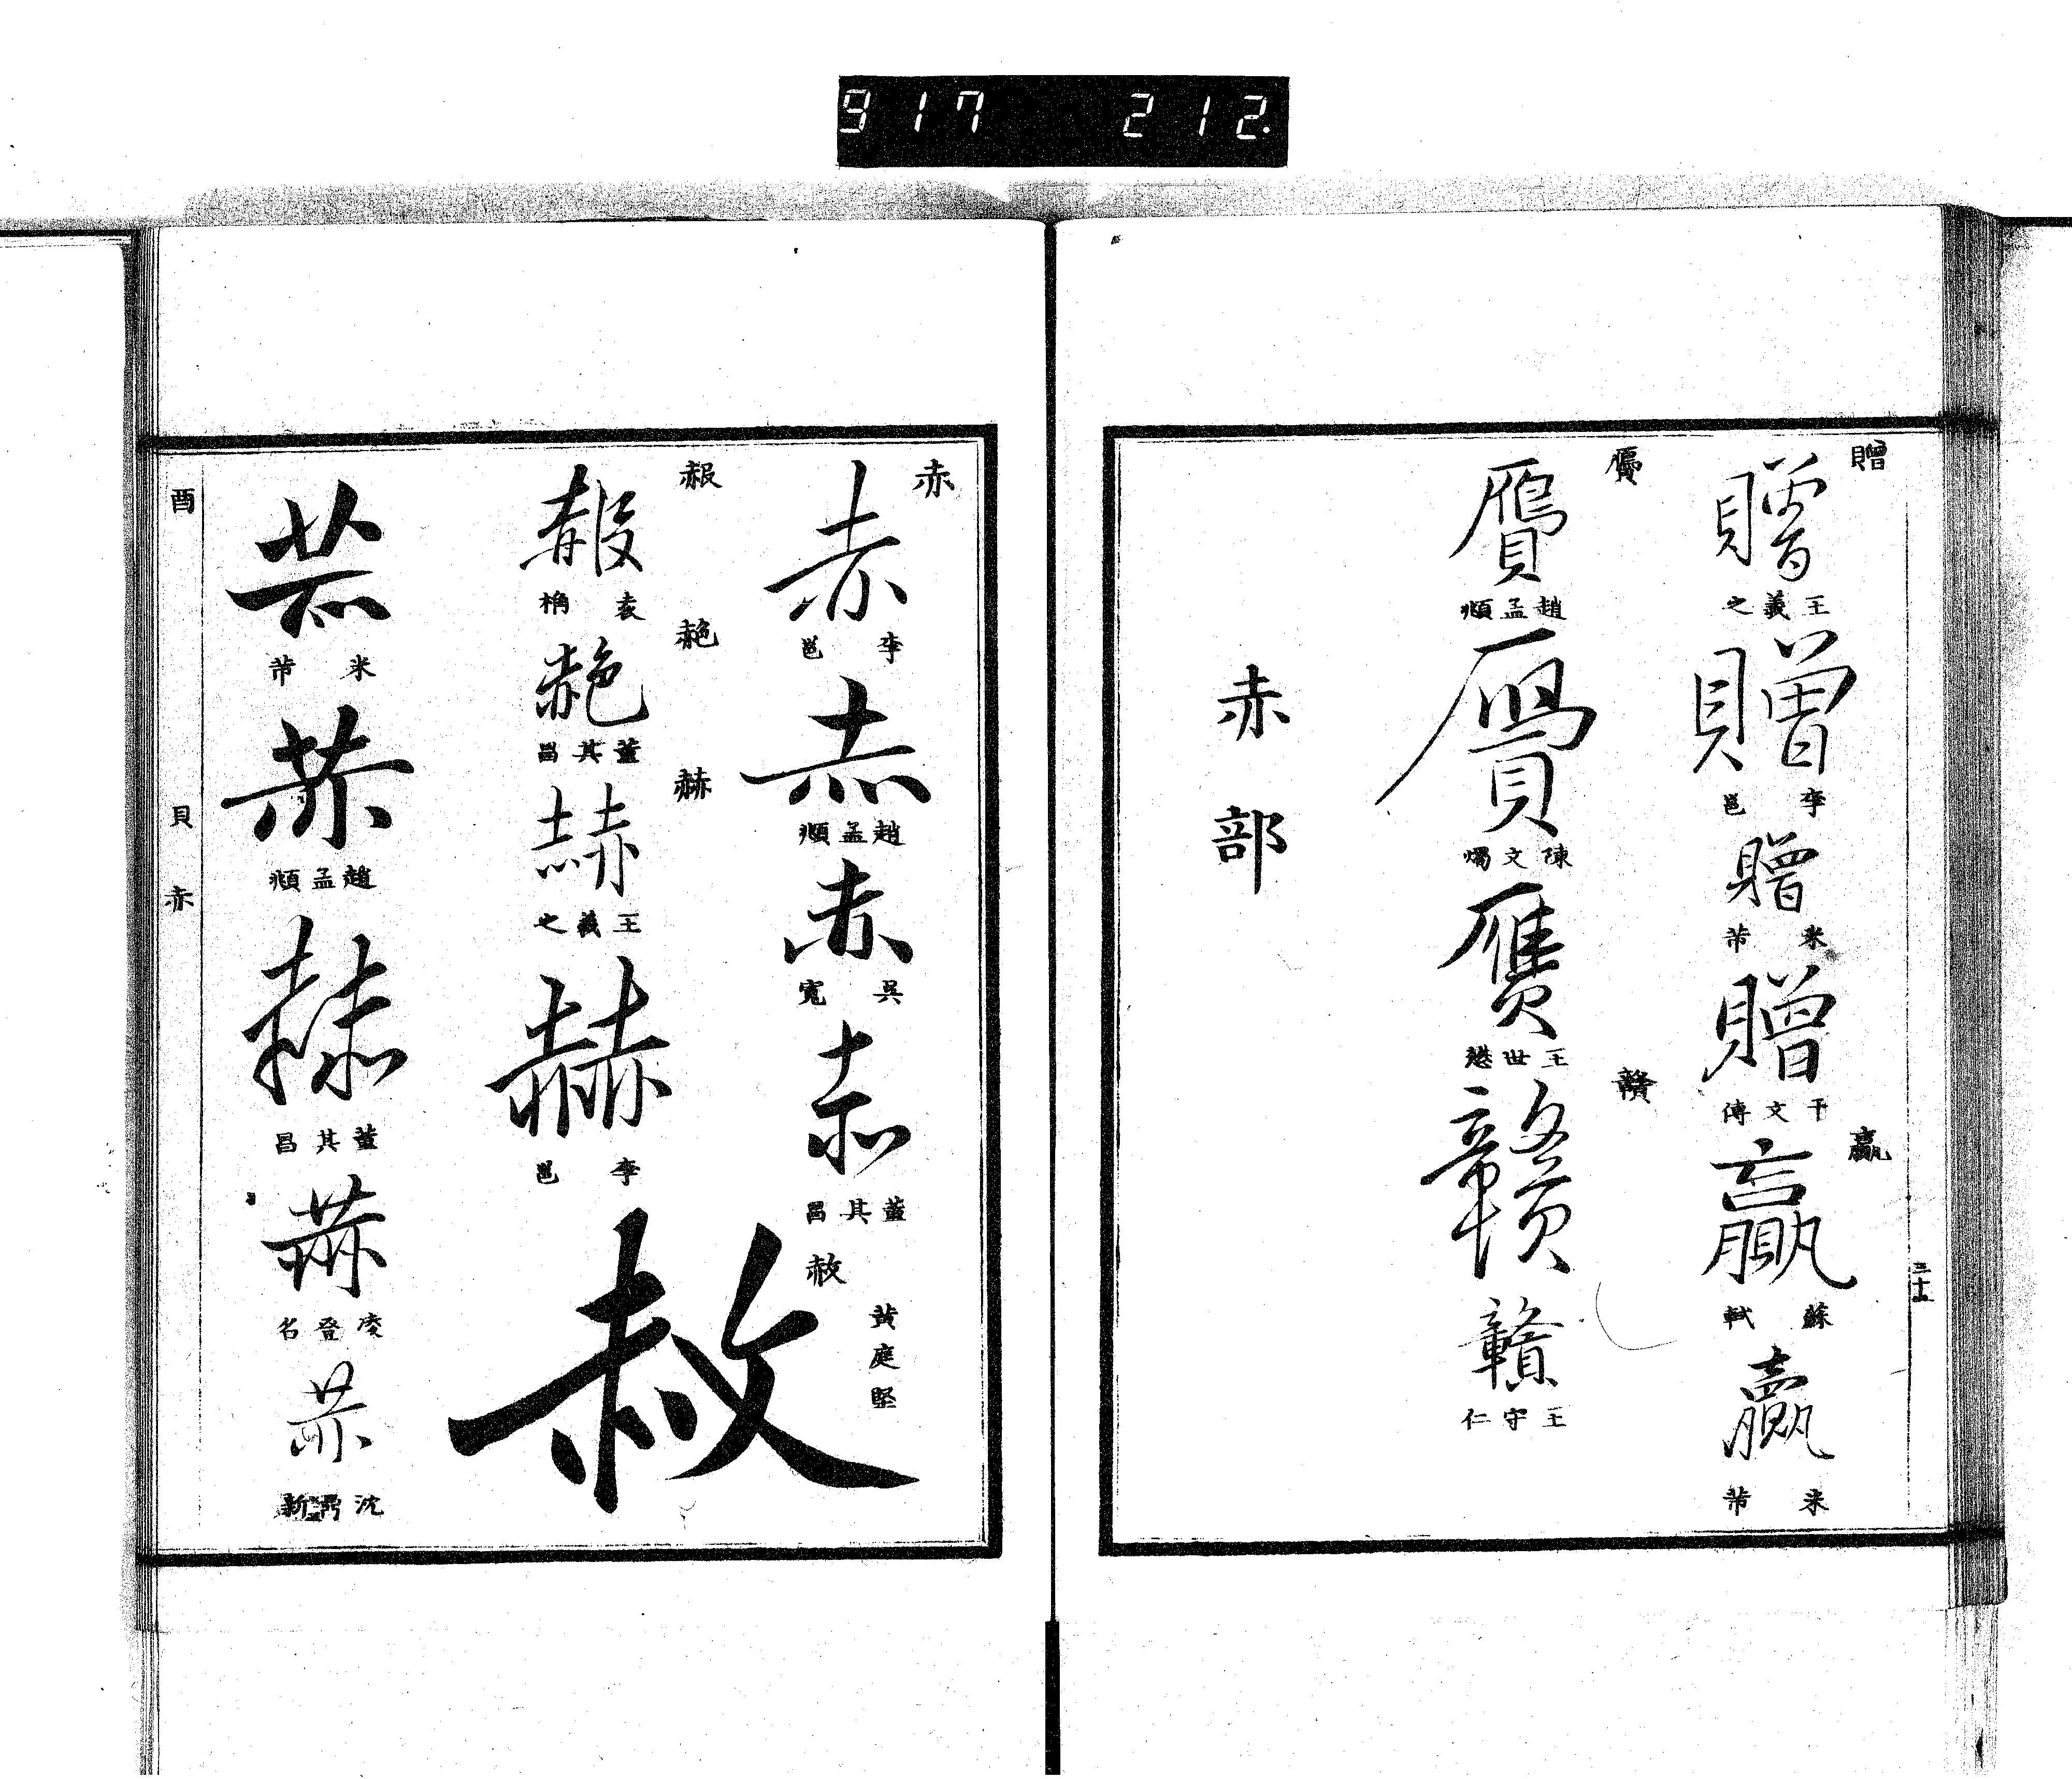 917 212
贈
贈
王羲之
贈
李邕
贈
米芾
贈
干文傳
贏
贏
蘇軾
贏
米芾
三十
贗
贗
趙孟頫
贗
陳文燭
贗
王世懋
贛
贛
贛
王守仁
赤部
赤
赤
李邕
赤
趙孟頫
赤
吳寬
赤
董其昌
赦
赦
黃庭堅
赧
赧
袁桷
赩
赩
董其昌
赫
赫
王羲之
赫
李邕
赫
米芾
赫
趙孟頫
赫
董其昌
赫
凌登名
赫
沈鼎新
酉 貝 赤